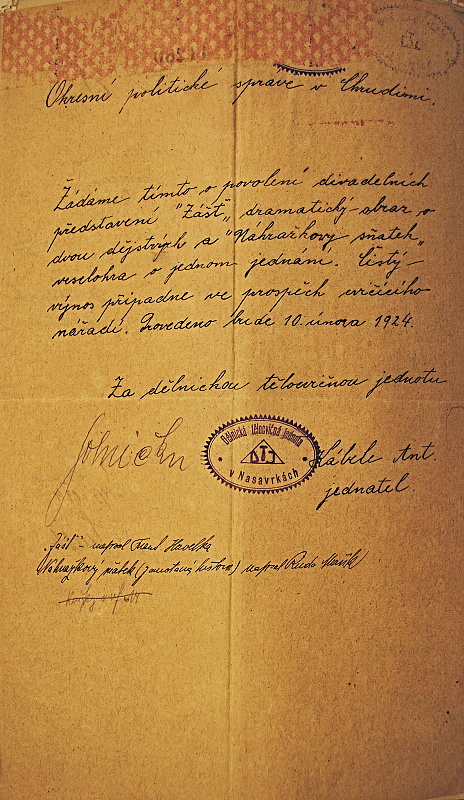 Okresní politické správě v Chrudimi.
Žádáme tímto o povolení divadelních
představení "Zášť" dramatický obraz o
dvou dějstvých a "Náhražkový sňatek"
veselohra o jednom jednání. Čistý
výnos připadne ve prospěch cvičícího
nářadí. Provedeno bude 10. února 1924.
Za dělnickou tělocvičnou jednotu
Dělnická tělocvičná jednota
DTJ
v Nasavrkách
Kábele Ant.
jednatel.
"Zášť" - napsal Frant. Havelka
Náhražkový sňatek (Zamotaná historie) napsal Ruda Mařík